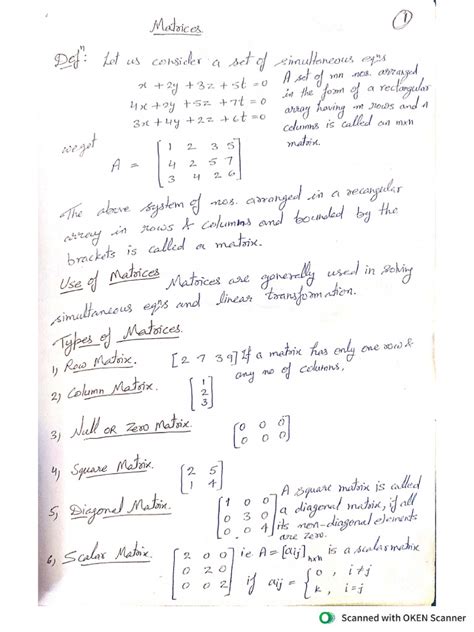 Matrices
1
Defⁿ: Let us consider a set of simultaneous eqⁿs
x + 2y + 3z + 5t = 0
4x + 2y + 5z + 7t = 0
3x + 4y + 2z + 6t = 0
A set of mn nos. arranged
in the form of a rectangular
array having m rows and n
columns is called an mxn
matrix.
we get
A = [ 1 2 3 5
4 2 5 7
3 4 2 6 ]
The above system of nos. arranged in a recangular
array in rows & columns and bounded by the
brackets is called a matrix.
Use of Matrices Matrices are generally used in solving
simultaneous eqⁿs and linear transformation.
Types of Matrices.
1) Row Matrix. [2 7 3 9] If a matrix has only one row &
any no of columns.
2) Column Matrix. [ 1
2
3 ]
3) Null OR Zero Matrix. [ 0 0 0
0 0 0 ]
4) Square Matrix. [ 2 5
1 4 ]
5) Diagonal Matrix. [ 1 0 0
0 3 0
0 0 4 ]
A square matrix is called
a diagonal matrix, if all
its non-diagonal elements
are zero.
6) Scalar Matrix. [ 2 0 0
0 2 0
0 0 2 ]
ie A = [aij]nxn is a scalar matrix
if aij = { 0, i ≠ j
k, i = j
Scanned with OKEN Scanner